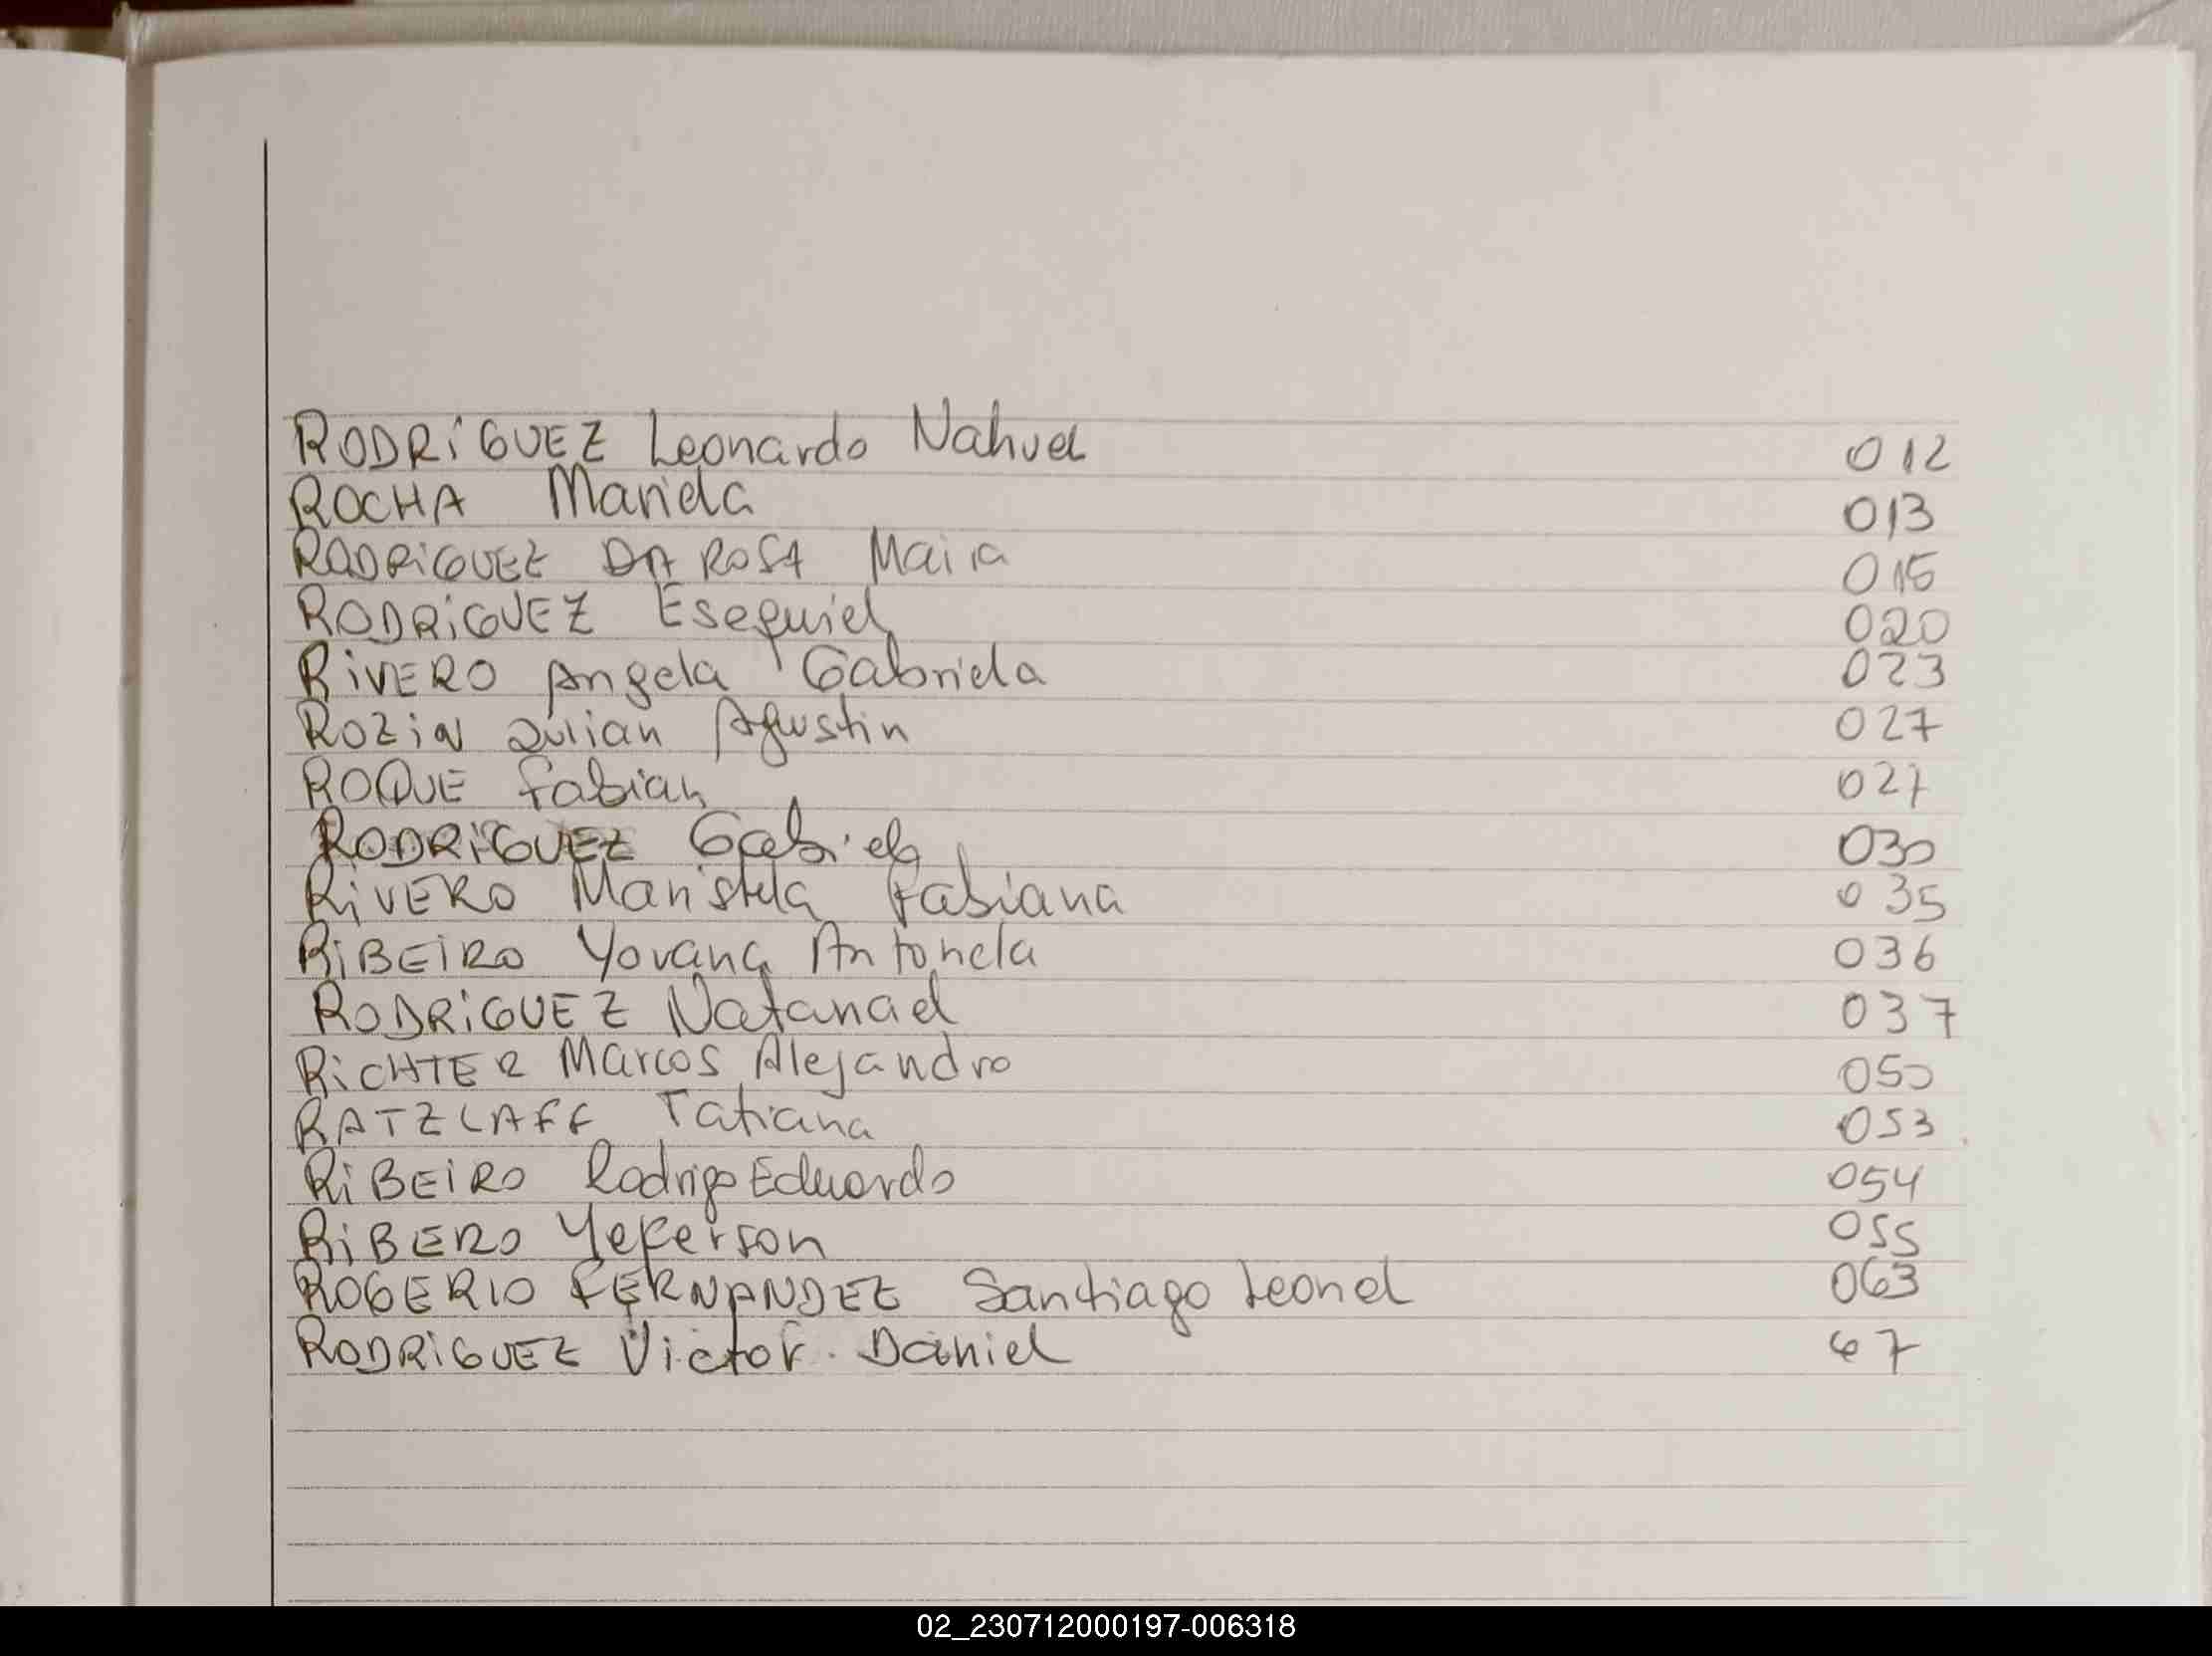 RODRIGUEZ Leonardo Nahuel 012
ROCHA Mariela 013
RODRIGUEZ DA ROSA Maira 015
RODRIGUEZ Esequiel 020
RIVERO Angela Gabriela 023
ROZIN Julian Agustin 027
ROQUE Fabian 027
RODRIGUEZ Gabriela 030
RIVERO Maristela Fabiana 035
RIBEIRO Yovana Antonela 036
RODRIGUEZ Natanael 037
RICHTER Marcos Alejandro 050
RATZLAFF Tatiana 053
RIBEIRO Rodrigo Eduardo 054
RIBERO Yeferson 055
ROGERIO FERNANDEZ Santiago Leonel 063
RODRIGUEZ Victor Daniel 67
02_230712000197-006318